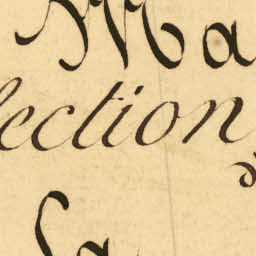 Ma
lection
Sa